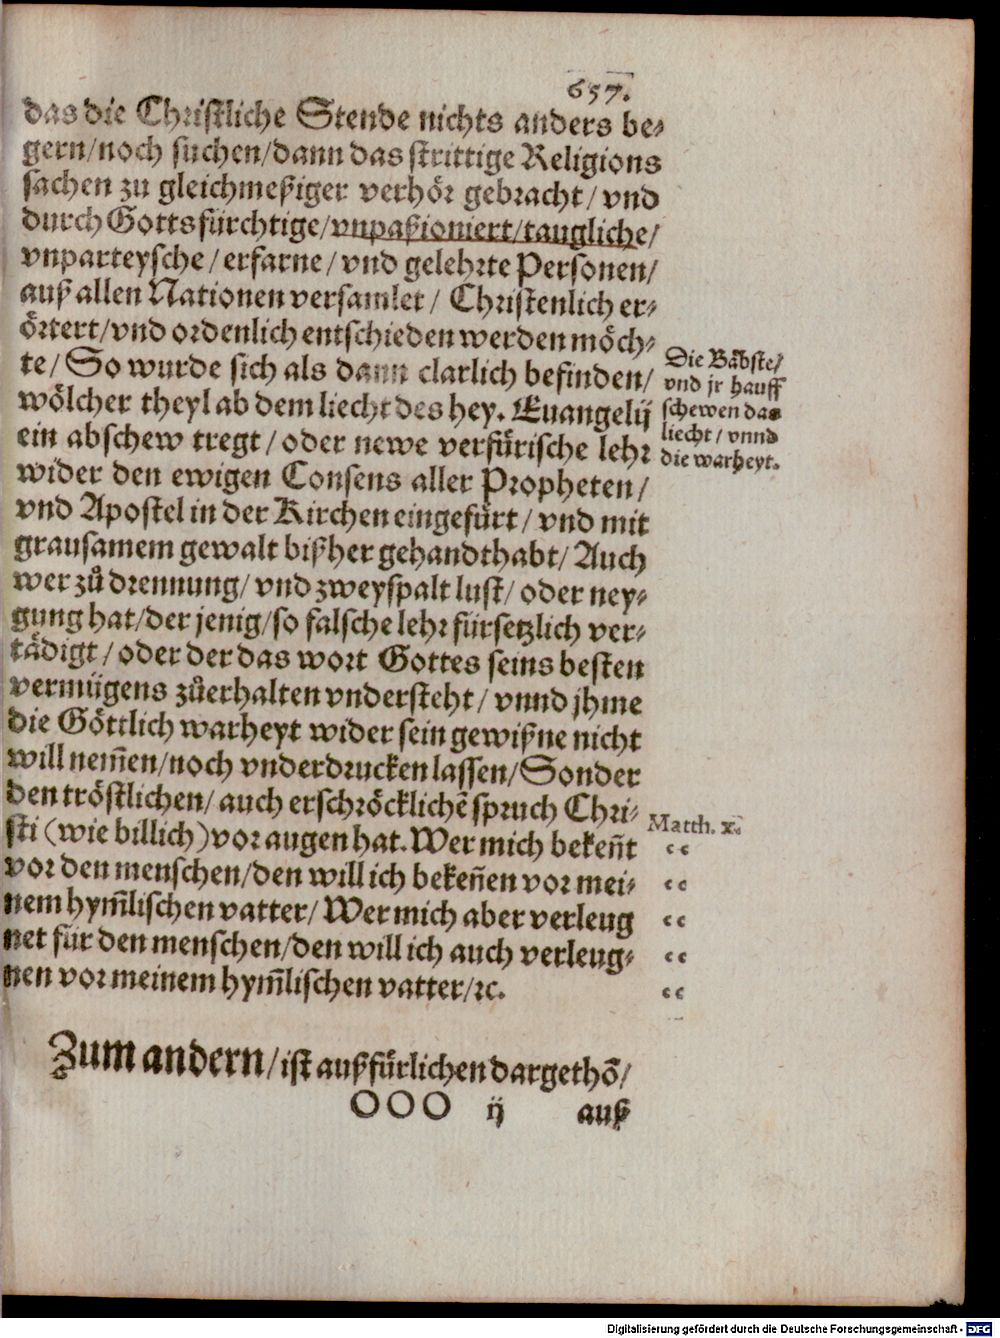 657.
das die Christliche Stende nichts anders be⸗
gern/noch suchen/dann das strittige Religions
sachen zu gleichmeßiger verhör gebracht/ vnd
durch Gottsfürchtige/vnpaßioniert/taugliche/
vnparteysche/ erfarne/ vnd gelehrte Personen/
auß allen Nationen versamlet/ Christenlich er⸗
örtert/vnd ordenlich entschieden werden möch⸗
te/ So wurde sich als dann clarlich befinden/
wölcher theyl ab dem liecht des hey. Euangelij
ein abschew tregt/ oder newe verfürische lehr
wider den ewigen Consens aller Propheten/
vnd Apostel in der Kirchen eingefürt/ vnd mit
grausamem gewalt bißher gehandthabt/ Auch
wer zů drennung/ vnd zweyspalt lust/ oder ney⸗
gung hat/der jenig/so falsche lehr fürsetzlich ver⸗
tädigt/ oder der das wort Gottes seins besten
vermügens zůerhalten vndersteht/ vnnd jhme
die Göttlich warheyt wider sein gewißne nicht
will nem̃en/noch vnderdrucken lassen/Sonder
den tröstlichen/ auch erschröcklichẽ spruch Chri⸗
sti (wie billich) vor augen hat. Wer mich bekeñt
vor den menschen/den will ich bekeñen vor mei⸗
nem hym̃lischen vatter/ Wer mich aber verleug
net für den menschen/den will ich auch verleug⸗
nen vor meinem hym̃lischen vatter/ꝛc.
Die Bäbste/
vnd jr hauff
schewen das
liecht/ vnnd
die warheyt.
Matth. x.
“
“
“
“
“
Zum andern/ist außfürlichen dargethõ/
OOO ij auß
Digitalisierung gefördert durch die Deutsche Forschungsgemeinschaft - DFG